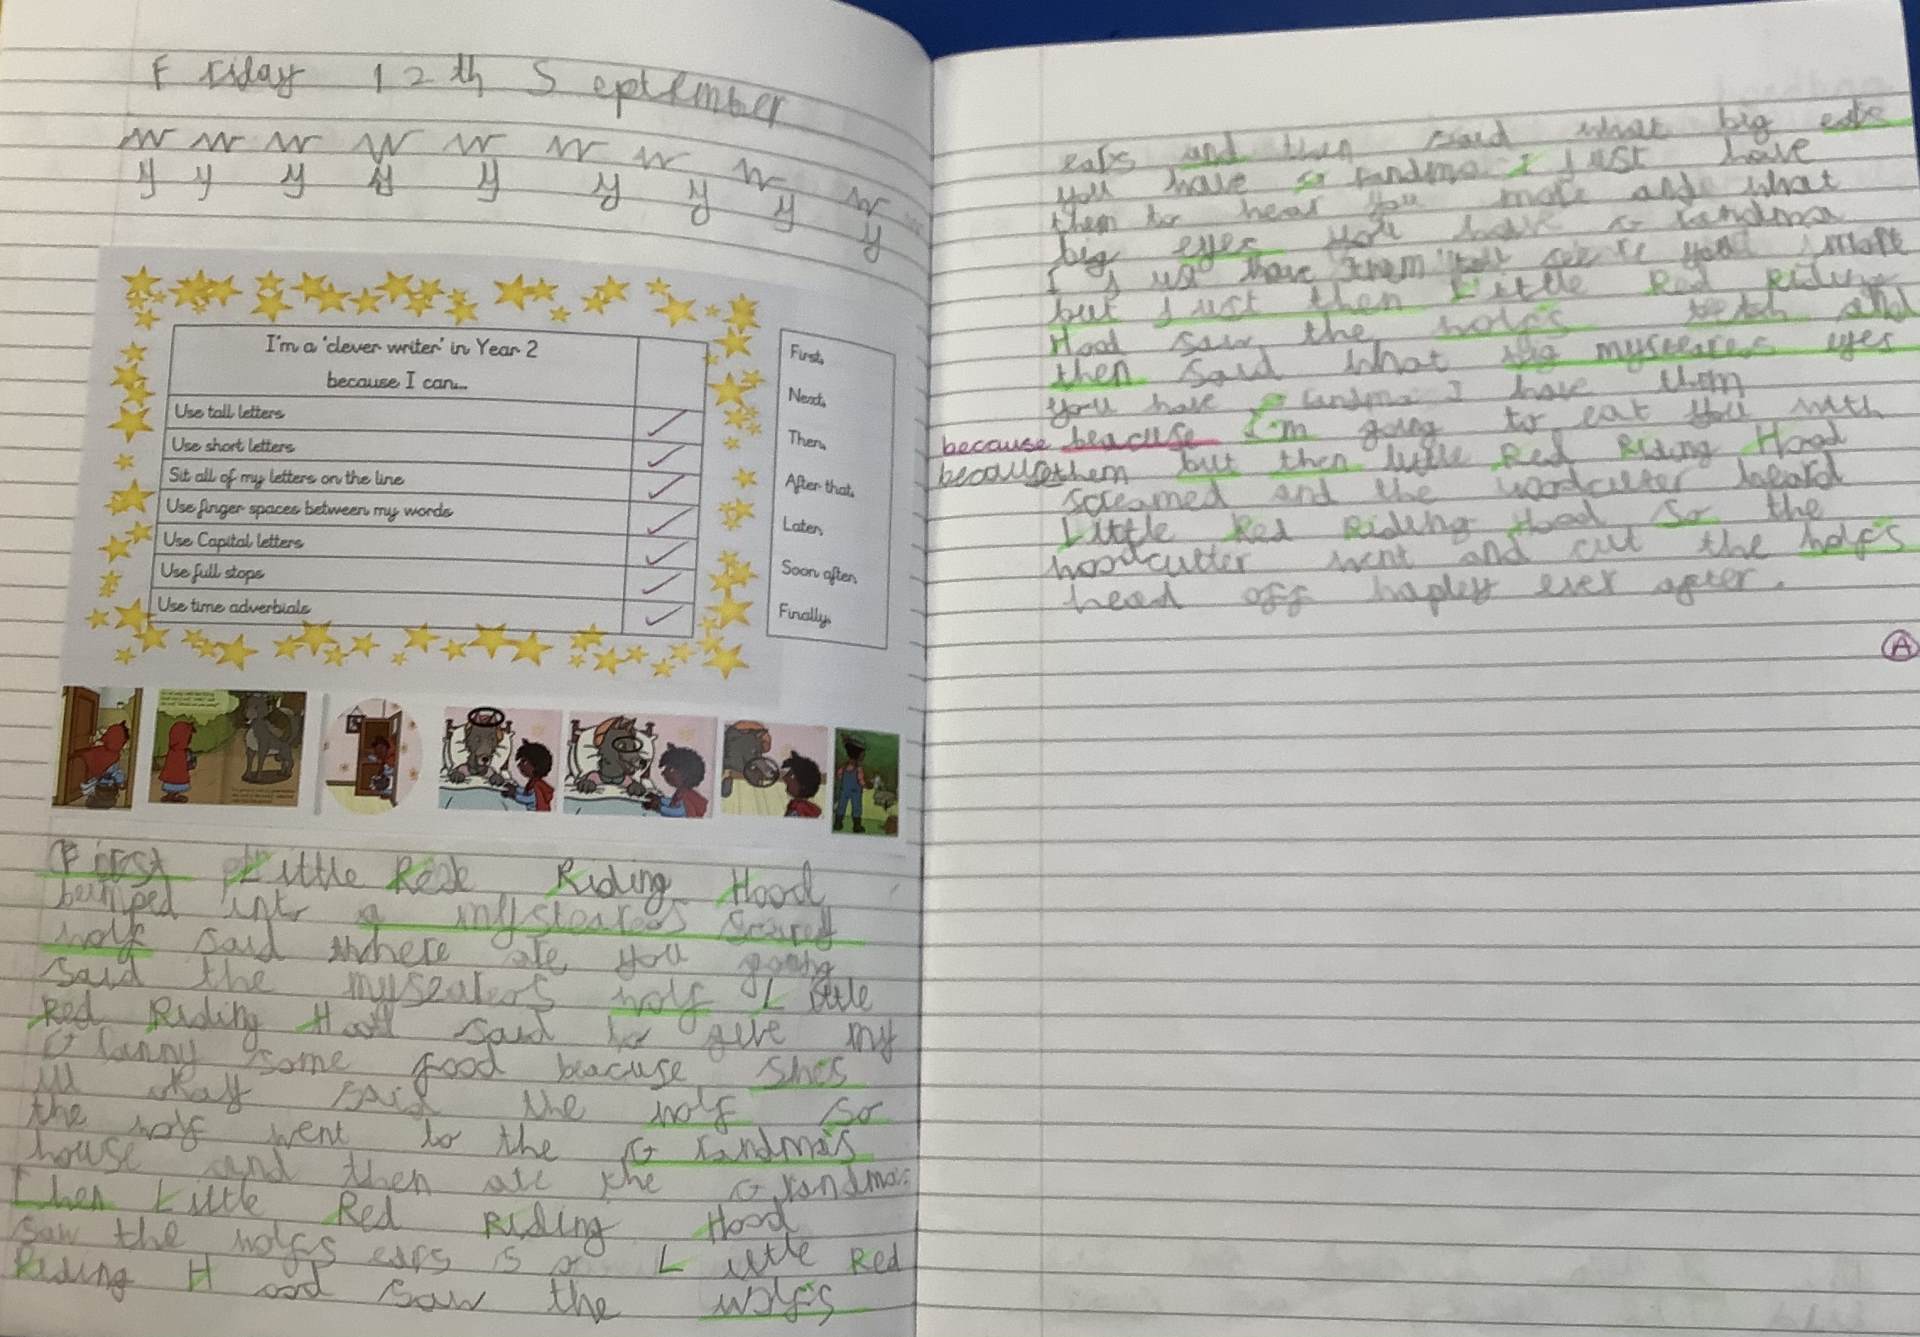 Friday 12th September
w w w w w w w w w
y y y y y y y y y
I'm a 'clever writer' in Year 2
because I can...
Use tall letters
Use short letters
Sit all of my letters on the line
Use finger spaces between my words
Use Capital letters
Use full stops
Use time adverbials
First,
Next,
Then,
After that,
Later,
Soon after,
Finally,
First Little Red Riding Hood
bumped into a mysteareos scared
wolf said where are you going
said the mysearers wolf Little
Red Riding Hood said to geve my
Granny some food beacuse she's
ill okay said the wolf so
the wolf went to the Grandma's
house and then ate the Grandma.
Then Little Red Riding Hood
saw the wolfs ears so Little Red
Riding Hood saw the wolf's
ears and then said what big ears
you have Grandma I just have
them to hear you more and what
big eyes you have Grandma
I just have them to see you more
but just then Little Red Riding
Hood saw the wolf's teeth and
then said what big mystearers eyes
you have Grandma I have them
because beacuse I'm going to eat you with
because them but then little Red Riding Hood
screamed and the woodcutter heard
Little Red Riding Hood so the
woodcutter went and cut the wolf's
head off hapley ever after.
A